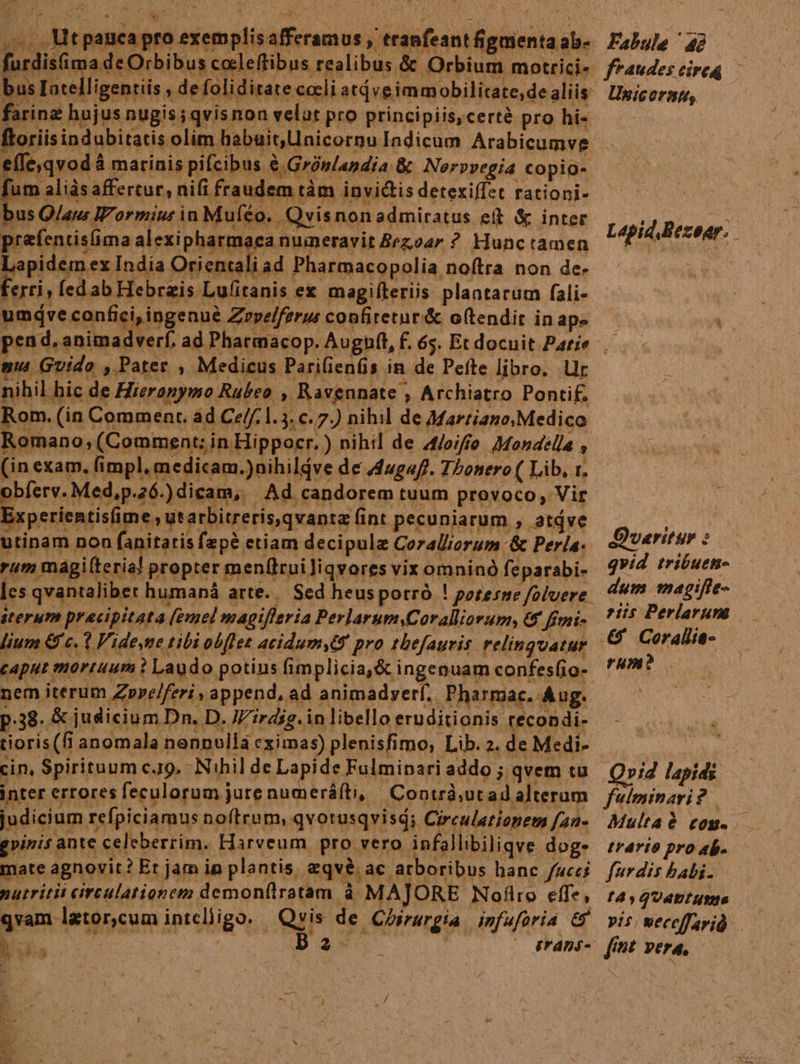 Ut pauca pro exemplis afferamus, tranſeant figmenta ab-
ſurdisſima de Orbibus cœleſtibus realibus & Orbium motrici-
bus Intelligentiis, de ſoliditate cœli atqve immobilitate, de aliis
farinæ hujus nugis; qvis non velut pro principiis, certè pro hi-
ſtoriis indubitatis olim habuit, Unicornu Indicum Arabicumve
eſſe, qvod â marinis piſcibus è Grönlandia & Norvvegia copio-
ſum aliàs affertur, niſi fraudem tàm invictis detexiſſet rationi-
bus Olaus Wormius in Muſéo. Qvis non admiratus eſt & inter
præſentisſima alexipharmaca numeravit Bezoar? Hunc tamen
Lapidem ex India Orientali ad Pharmacopolia noſtra non de-
ferri, ſed ab Hebræis Luſitanis ex magiſteriis plantarum ſali-
umqve confici, ingenuè Zvvelferus confitetur & oſtendit in ap-
pend. animadverſ. ad Pharmacop. Auguſt, f. 65. Et docuit Patie
nus Gvido, Pater, Medicus Pariſienſis in de Peſte libro. Ut
nihil hic de Hieronymo Rubeo, Ravennate, Archiatro Pontif.
Rom. (in Comment. ad Celſ. l. 3. c. 7.) nihil de Martiano, Medico
Romano, (Comment: in Hippocr.) nihil de Aloiſio Mondella,
(in exam. ſimpl. medicam.) nihilqve de Auguſt. Thonero (Lib, 1.
obſerv. Med, p. 26.) dicam, Ad candorem tuum provoco, Vir
Experientisſime, ut arbitreris, qvantæ ſint pecuniarum, atqve
utinam non ſanitatis ſæpè etiam decipulæ Coralliorum & Perla-
rum magiſteria! propter menſtrui liqvores vix omninò ſeparabi-
les qvantaliber humanâ arte. Sed heus porrò! potesne ſolvere
iterum præcipitata ſemel magiſteria Perlarum, Coralliorum, & ſimi-
lium &c.? Vide, ne tibi obſtet acidum, & pro theſauris relinqvatur
caput mortuum? Laudo potius ſimplicia, & ingenuam confesſio-
nem iterum Zvvelferi, append, ad animadverſ. Pharmac. Aug.
p. 38. & judicium Dn. D. Wirdig. in libello eruditionis recondi-
tioris (ſi anomala nonnulla eximas) plenisſimo, Lib. 2. de Medi-
cin, Spirituum c. 19. Nihil de Lapide Fulminari addo; qvem tu
inter errores ſeculorum jure numeráſti, Contrà, ut ad alterum
judicium reſpiciamus noſtrum, qvotusqvisq; Circulationem ſan-
gvinis ante celeberrim. Harveum pro vero infallibiliqve dog-
mate agnovit? Et jam in plantis æqvè ac arboribus hanc ſucci
nutritii circulationem demonſtratam â MAJORE Noſtro eſſe,
qvam lætor, cum intelligo. Qvis de Chirurgia infuſoria &
B 2 trans-
Fabulæ &
fraudes circa
Unicornu,
Lapid, Bezoar.
Qværitur:
qvid tribuen-
dum magiſte-
riis Perlarum
& Corallio-
rum?
Qvid lapidi
fulminari?
Multa è con-
trario pro ab-
ſurdis habi-
ta, qvantumvis
vis neceſſariò
ſint vera,